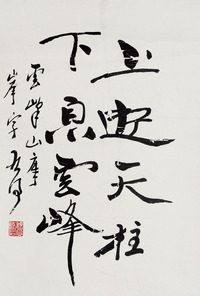 上遊天柱
下息雲峰
雲峯山摩
崖字